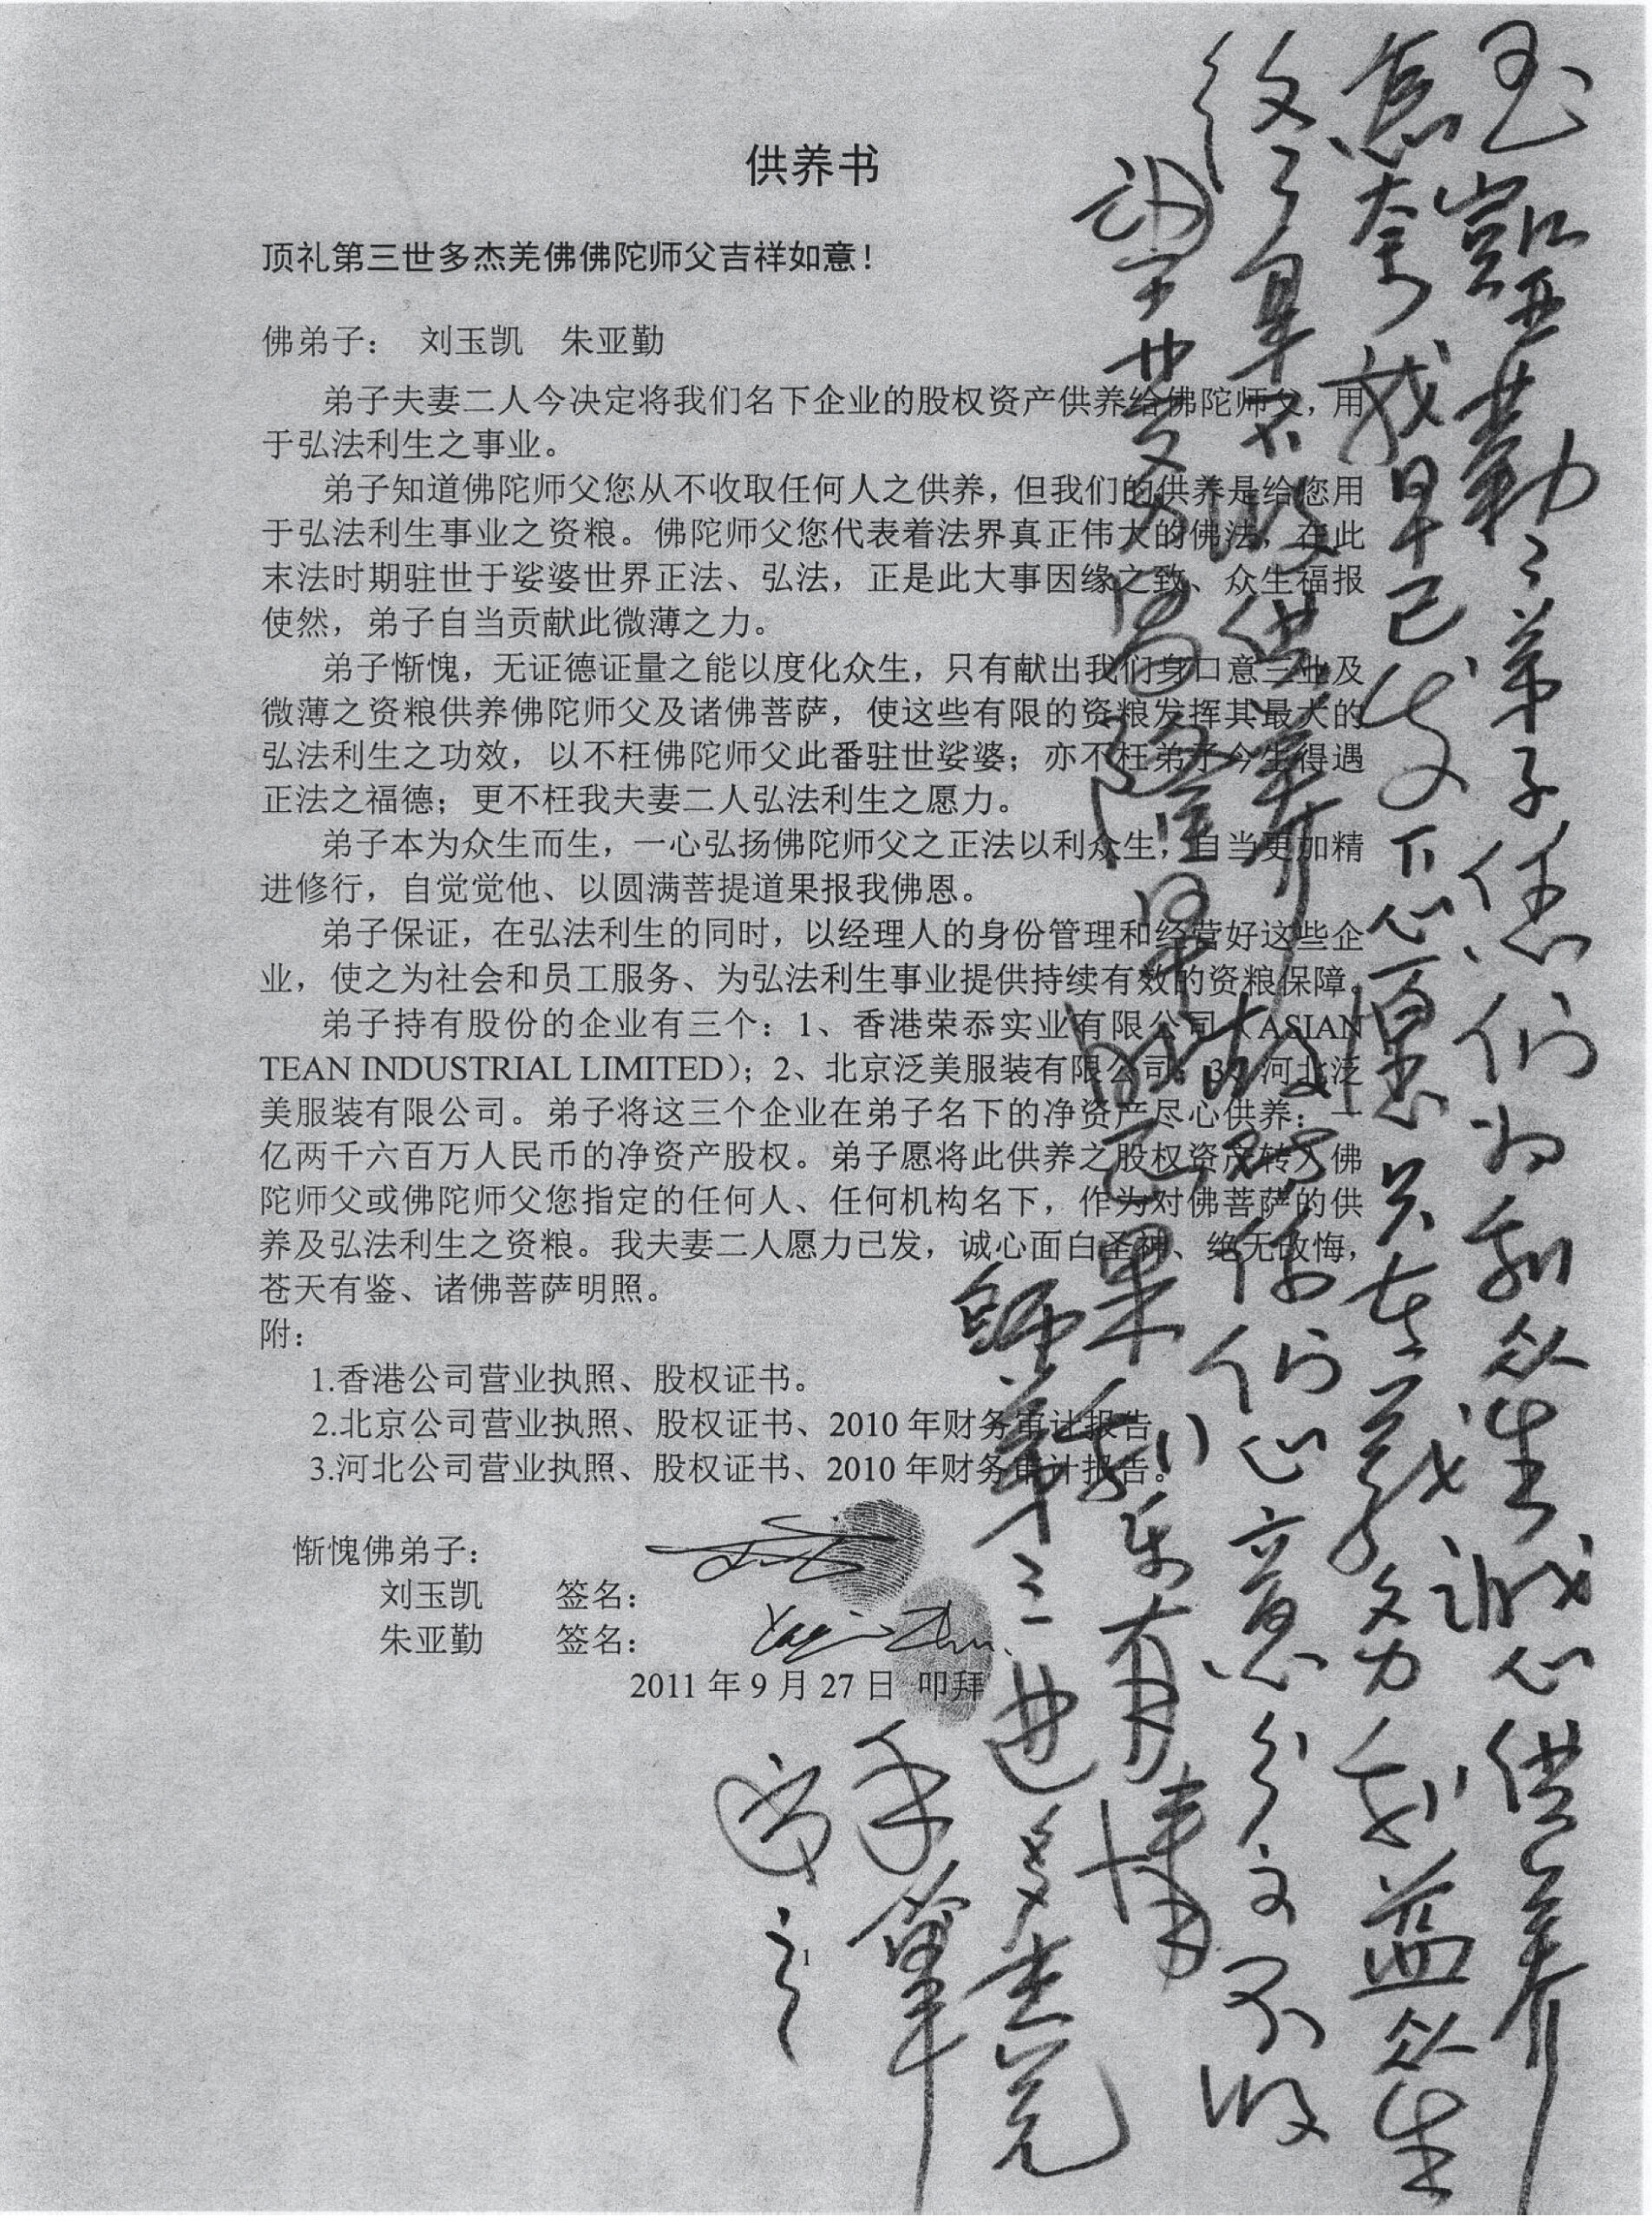 供养书
顶礼第三世多杰羌佛佛陀师父吉祥如意！
佛弟子： 刘玉凯 朱亚勤
弟子夫妻二人今决定将我们名下企业的股权资产供养给佛陀师父，用
于弘法利生之事业。
弟子知道佛陀师父您从不收取任何人之供养，但我们的供养是给您用
于弘法利生事业之资粮。佛陀师父您代表着法界真正伟大的佛法，在此
末法时期驻世于娑婆世界正法、弘法，正是此大事因缘之致、众生福报
使然，弟子自当贡献此微薄之力。
弟子惭愧，无证德证量之能以度化众生，只有献出我们身口意三业及
微薄之资粮供养佛陀师父及诸佛菩萨，使这些有限的资粮发挥其最大的
弘法利生之功效，以不枉佛陀师父此番驻世娑婆；亦不枉弟子今生得遇
正法之福德；更不枉我夫妻二人弘法利生之愿力。
弟子本为众生而生，一心弘扬佛陀师父之正法以利众生，自当更加精
进修行，自觉觉他、以圆满菩提道果报我佛恩。
弟子保证，在弘法利生的同时，以经理人的身份管理和经营好这些企
业，使之为社会和员工服务、为弘法利生事业提供持续有效的资粮保障。
弟子持有股份的企业有三个：1、香港荣忝实业有限公司（ASIAN
TEAN INDUSTRIAL LIMITED）；2、北京泛美服装有限公司；3、河北泛
美服装有限公司。弟子将这三个企业在弟子名下的净资产尽心供养：一
亿两千六百万人民币的净资产股权。弟子愿将此供养之股权资产转入佛
陀师父或佛陀师父您指定的任何人、任何机构名下，作为对佛菩萨的供
养及弘法利生之资粮。我夫妻二人愿力已发，诚心面白圣神、绝无改悔，
苍天有鉴、诸佛菩萨明照。
附：
1.香港公司营业执照、股权证书。
2.北京公司营业执照、股权证书、2010 年财务审计报告
3.河北公司营业执照、股权证书、2010 年财务审计报告。
惭愧佛弟子：
刘玉凯 签名：
朱亚勤 签名： Yaqin Zhu
2011 年 9 月 27 日 叩拜
1
玉凯亚勤二弟子你们为利众生诚心供养
怎奈我早已发下心愿只在义务利益众生
不收供养 你们心意分文不收
利乐有情
师第三世多杰羌